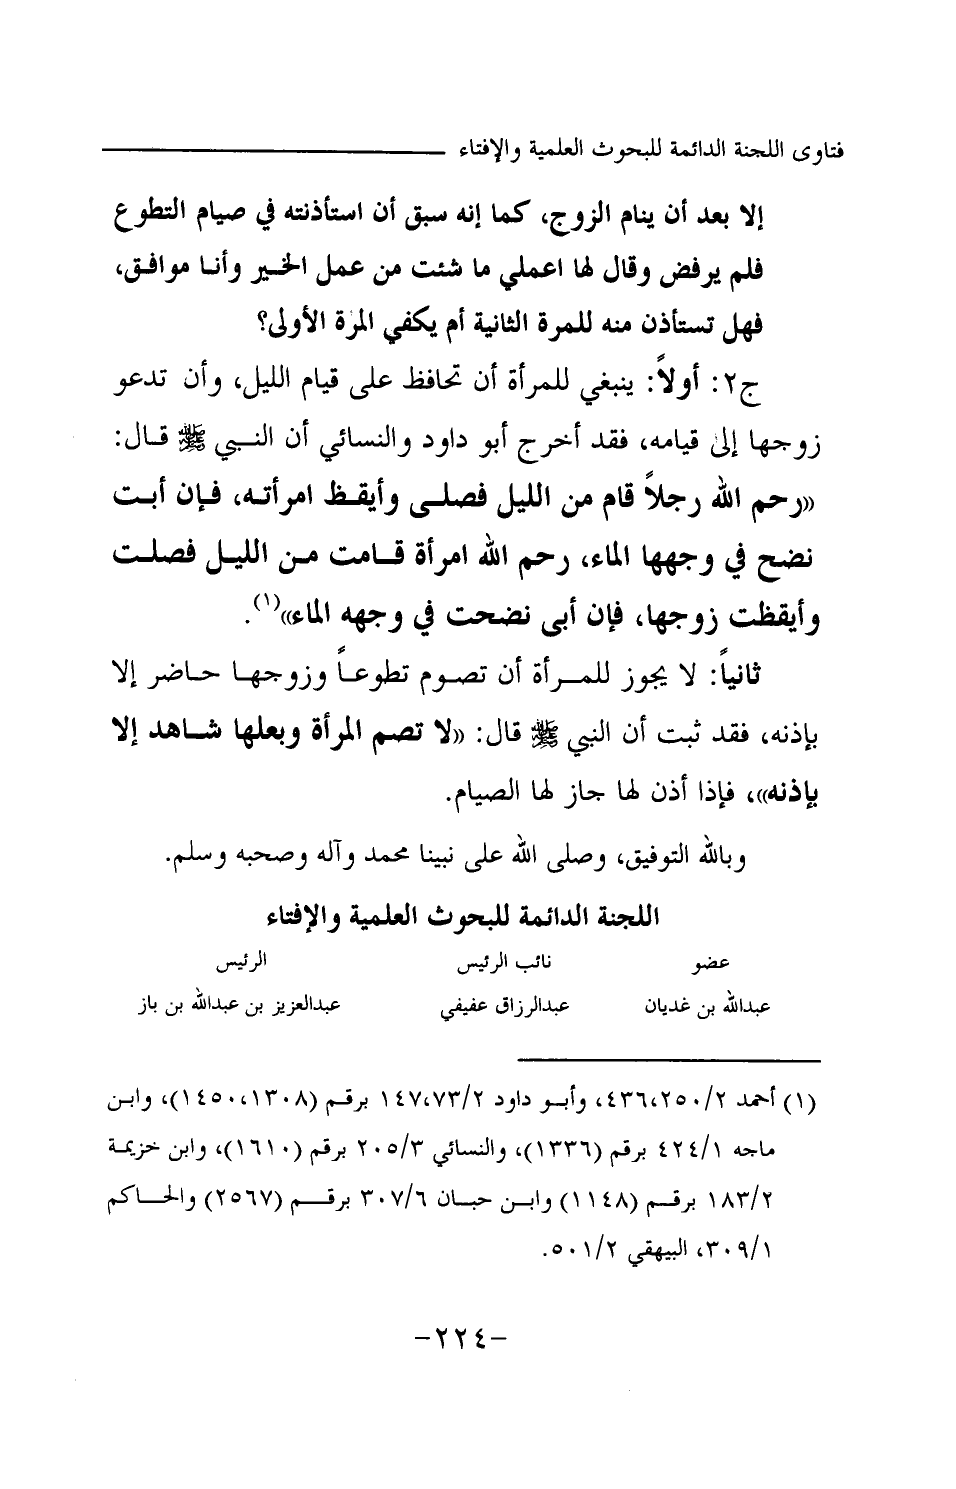 فتاوى اللجنة الدائمة للبحوث العلمية والإفتاء
إلا بعد أن ينام الزوج، كما إنه سبق أن استأذنته في صيام التطوع
فلم يرفض وقال لها اعملي ما شئت من عمل الخير وأنا موافق،
فهل تستأذن منه للمرة الثانية أم يكفي المرة الأولى؟
ج٢: أولاً: ينبغي للمرأة أن تحافظ على قيام الليل، وأن تدعو
زوجها إلى قيامه، فقد أخرج أبو داود والنسائي أن النبي ﷺ قال:
«رحم الله رجلاً قام من الليل فصلى وأيقظ امرأته، فإن أبت
نضح في وجهها الماء، رحم الله امرأة قامت من الليل فصلت
وأيقظت زوجها، فإن أبى نضحت في وجهه الماء»(١).
ثانياً: لا يجوز للمرأة أن تصوم تطوعاً وزوجها حاضر إلا
بإذنه، فقد ثبت أن النبي ﷺ قال: «لا تصم المرأة وبعلها شاهد إلا
بإذنه»، فإذا أذن لها جاز لها الصيام.
وبالله التوفيق، وصلى الله على نبينا محمد وآله وصحبه وسلم.
اللجنة الدائمة للبحوث العلمية والإفتاء
عضو نائب الرئيس الرئيس
عبدالله بن غديان عبدالرزاق عفيفي عبدالعزيز بن عبدالله بن باز
(١) أحمد ٢/٢٥٠،٤٣٦، وأبو داود ٢/٧٣،١٤٧ برقم (١٣٠٨،١٤٥٠)، وابن
ماجه ١/٤٢٤ برقم (١٣٣٦)، والنسائي ٣/٢٠٥ برقم (١٦١٠)، وابن خزيمة
٢/١٨٣ برقم (١١٤٨) وابن حبان ٦/٣٠٧ برقم (٢٥٦٧) والحاكم
١/٣٠٩، البيهقي ٢/٥٠١.
-٢٢٤-